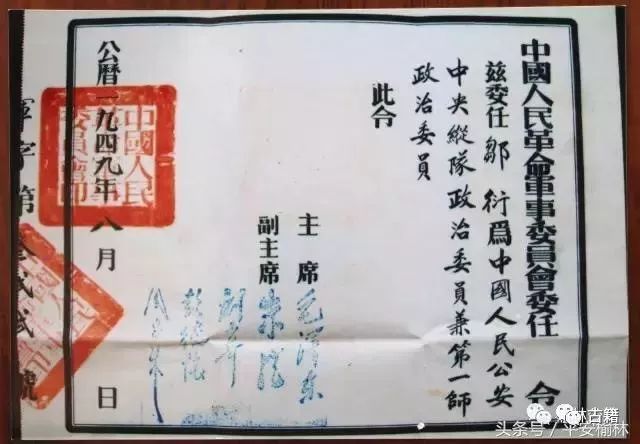 中國人民革命軍事委員會委任令
茲委任鄒衍爲中國人民公安
中央縱隊政治委員兼第一師
政治委員
此令
主席 毛澤東
副主席 朱德
劉少奇
彭德懷
公曆一九四九年八月 日
中國人民
委員會印
字第 號
林古籍
头条号/平安榆林